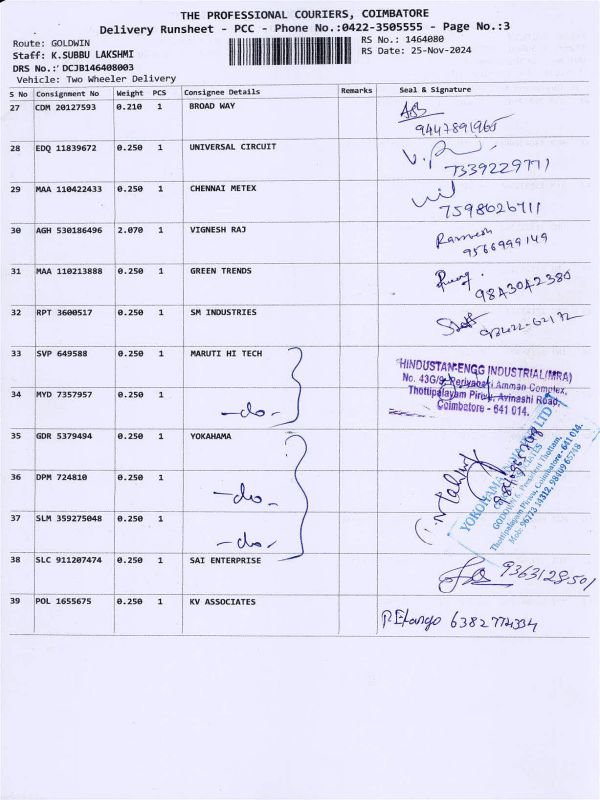 THE PROFESSIONAL COURIERS, COIMBATORE
Delivery Runsheet - PCC - Phone No.:0422-3505555 - Page No.:3
Route: GOLDWIN
RS No.: 1464080
Staff: K.SUBBU LAKSHMI
RS Date: 25-Nov-2024
DRS No.: DCJB146408003
Vehicle: Two Wheeler Delivery
S No Consignment No Weight PCS Consignee Details Remarks Seal & Signature
27 CDM 20127593 0.210 1 BROAD WAY
9447891965
28 EDQ 11839672 0.250 1 UNIVERSAL CIRCUIT
7339229771
29 MAA 110422433 0.250 1 CHENNAI METEX
7598026711
30 AGH 530186496 2.070 1 VIGNESH RAJ Ramesh
9566999149
31 MAA 110213888 0.250 1 GREEN TRENDS
9843042380
32 RPT 3600517 0.250 1 SM INDUSTRIES
33 SVP 649588 0.250 1 MARUTI HI TECH
HINDUSTAN ENGG INDUSTRIAL(MRA)
No. 43G/9, Periyanari Amman Complex,
Thottipalayam Pirivu, Avinashi Road,
Coimbatore - 641 014.
34 MYD 7357957 0.250 1 -do-
35 GDR 5379494 0.250 1 YOKAHAMA
36 DPM 724810 0.250 1 -do-
37 SLM 359275048 0.250 1 -do-
YOKOHAMA INDIA PVT LTD
Thottipalayam Pirivu, Coimbatore - 641 014.
Mob: 96773 34312, 98409 65748
38 SLC 911207474 0.250 1 SAI ENTERPRISE
9363128501
39 POL 1655675 0.250 1 KV ASSOCIATES
P.Elango 6382774334